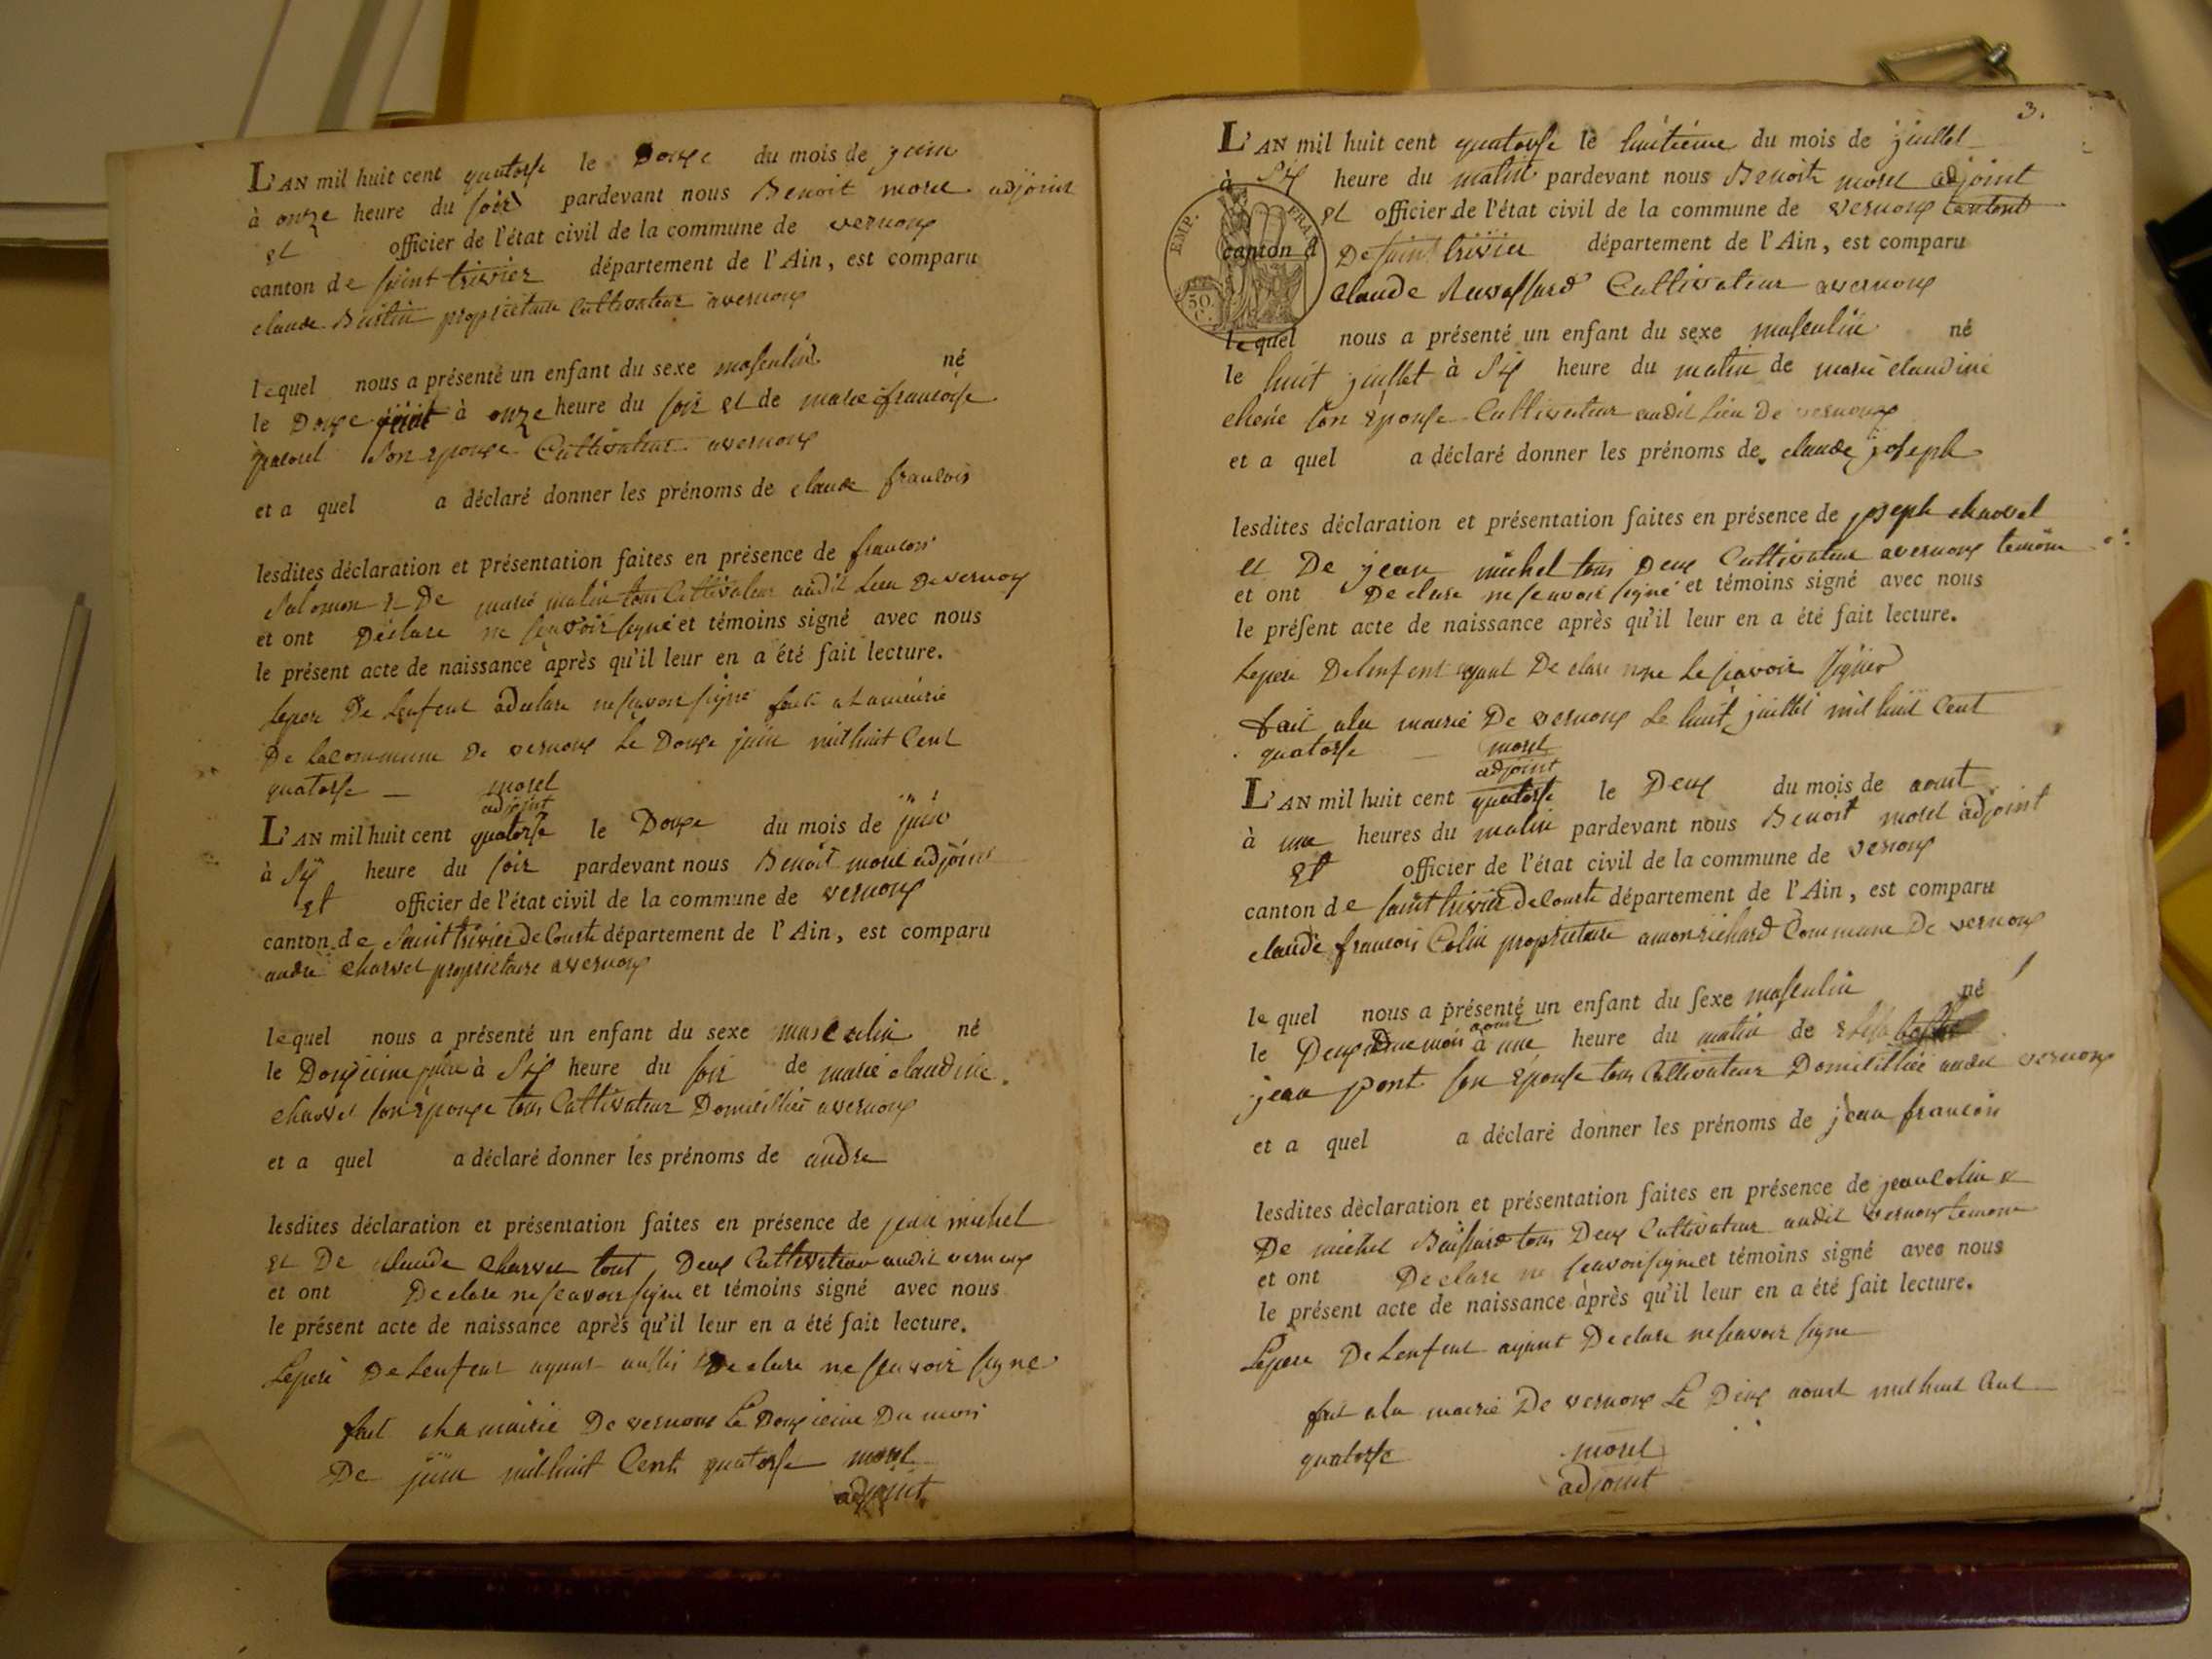 L'AN mil huit cent quatorse le Douze du mois de juin
à onze heure du soir pardevant nous Benoit morel adjoint
et officier de l'état civil de la commune de vernoux
canton de saint trivier département de l'Ain, est comparu
claude proprietaire Cultivateur avernoux
lequel nous a présenté un enfant du sexe masculin né
le Douze juin à onze heure du soir et de marie francoise
son epouse Cultivateur avernoux
et a quel a déclaré donner les prénoms de claude francois
lesdites déclaration et présentation faites en présence de francois
salomon et De marie tous Cultivateur audit Lieu De vernoux
et ont Déclare ne scavoir signé et témoins signé avec nous
le présent acte de naissance après qu'il leur en a été fait lecture.
Lepere De Lenfent adeclare nescavoir signe fait alameirie
De Lacommune De vernoux Le Douze juin mil huit Cent
quatorse — morel
adjoint
L'AN mil huit cent quatorse le Douze du mois de juin
à six heure du soir pardevant nous Benoit morel adjoint
et officier de l'état civil de la commune de vernoux
canton de Saint trivier De Courte département de l'Ain, est comparu
andré Charvet proprietaire avernoux
lequel nous a présenté un enfant du sexe masculin né
le Douzieme juin à six heure du soir de marie claudine
Chavvet son epouze tous Cultivateur Domicilliés avernoux
et a quel a déclaré donner les prénoms de andre
lesdites déclaration et présentation faites en présence de jean michel
et De claude Charvet tout Deux Cultivateur audit vernoux
et ont Declare ne scavoir signe et témoins signé avec nous
le présent acte de naissance après qu'il leur en a été fait lecture.
Lepere De Lenfent ayant aussi Declare ne scavoir signe
fait ala mairie De vernoux Le Douzieme Du mois
De juin mil huit Cent quatorse morel
adjoint
3.
L'AN mil huit cent quatorse le huitieme du mois de juillet
à six heure du matin pardevant nous Benoit morel adjoint
et officier de l'état civil de la commune de vernoux
canton d De saint trivier département de l'Ain, est comparu
EMP. FRAN.
50 C.
claude Cultivateur avernoux
lequel nous a présenté un enfant du sexe masculin né
le huit juillet à six heure du matin de marie claudine
chene son epouse Cultivateur audit Lieu De vernoux
et a quel a déclaré donner les prénoms de claude joseph
lesdites déclaration et présentation faites en présence de joseph chavvet
et De jean michel tous Deux Cultivateur avernoux temoin
et ont Declare ne scavoir signé et témoins signé avec nous
le présent acte de naissance après qu'il leur en a été fait lecture.
Lepere De lenfent ayant De clare ne Le scavoir signer
fait ala mairie De vernoux Le huit juillet mil huit Cent
quatorse — morel
adjoint
L'AN mil huit cent quatorse le Deux du mois de aoust
à une heures du matin pardevant nous Benoit morel adjoint
et officier de l'état civil de la commune de vernoux
canton de saint trivier De Courte département de l'Ain, est comparu
claude francois Colin proprietaire amonrichard Commune De vernoux
lequel nous a présenté un enfant du sexe masculin né
le Deuxieme mois aoust à une heure du matin de
jean pont son epouse tous Cultivateur Domicilliés vernoux
et a quel a déclaré donner les prénoms de jean francois
lesdites dèclaration et présentation faites en présence de jean Colin et
De michel tous Deux Cultivateur audit vernoux temoin
et ont Declare ne scavoir signe et témoins signé avec nous
le présent acte de naissance après qu'il leur en a été fait lecture.
Lepere De Lenfent ayant Declare ne scavoir signe
fait ala mairie De vernoux Le Deux aoust mil huit Cent
quatorse morel
adjoint